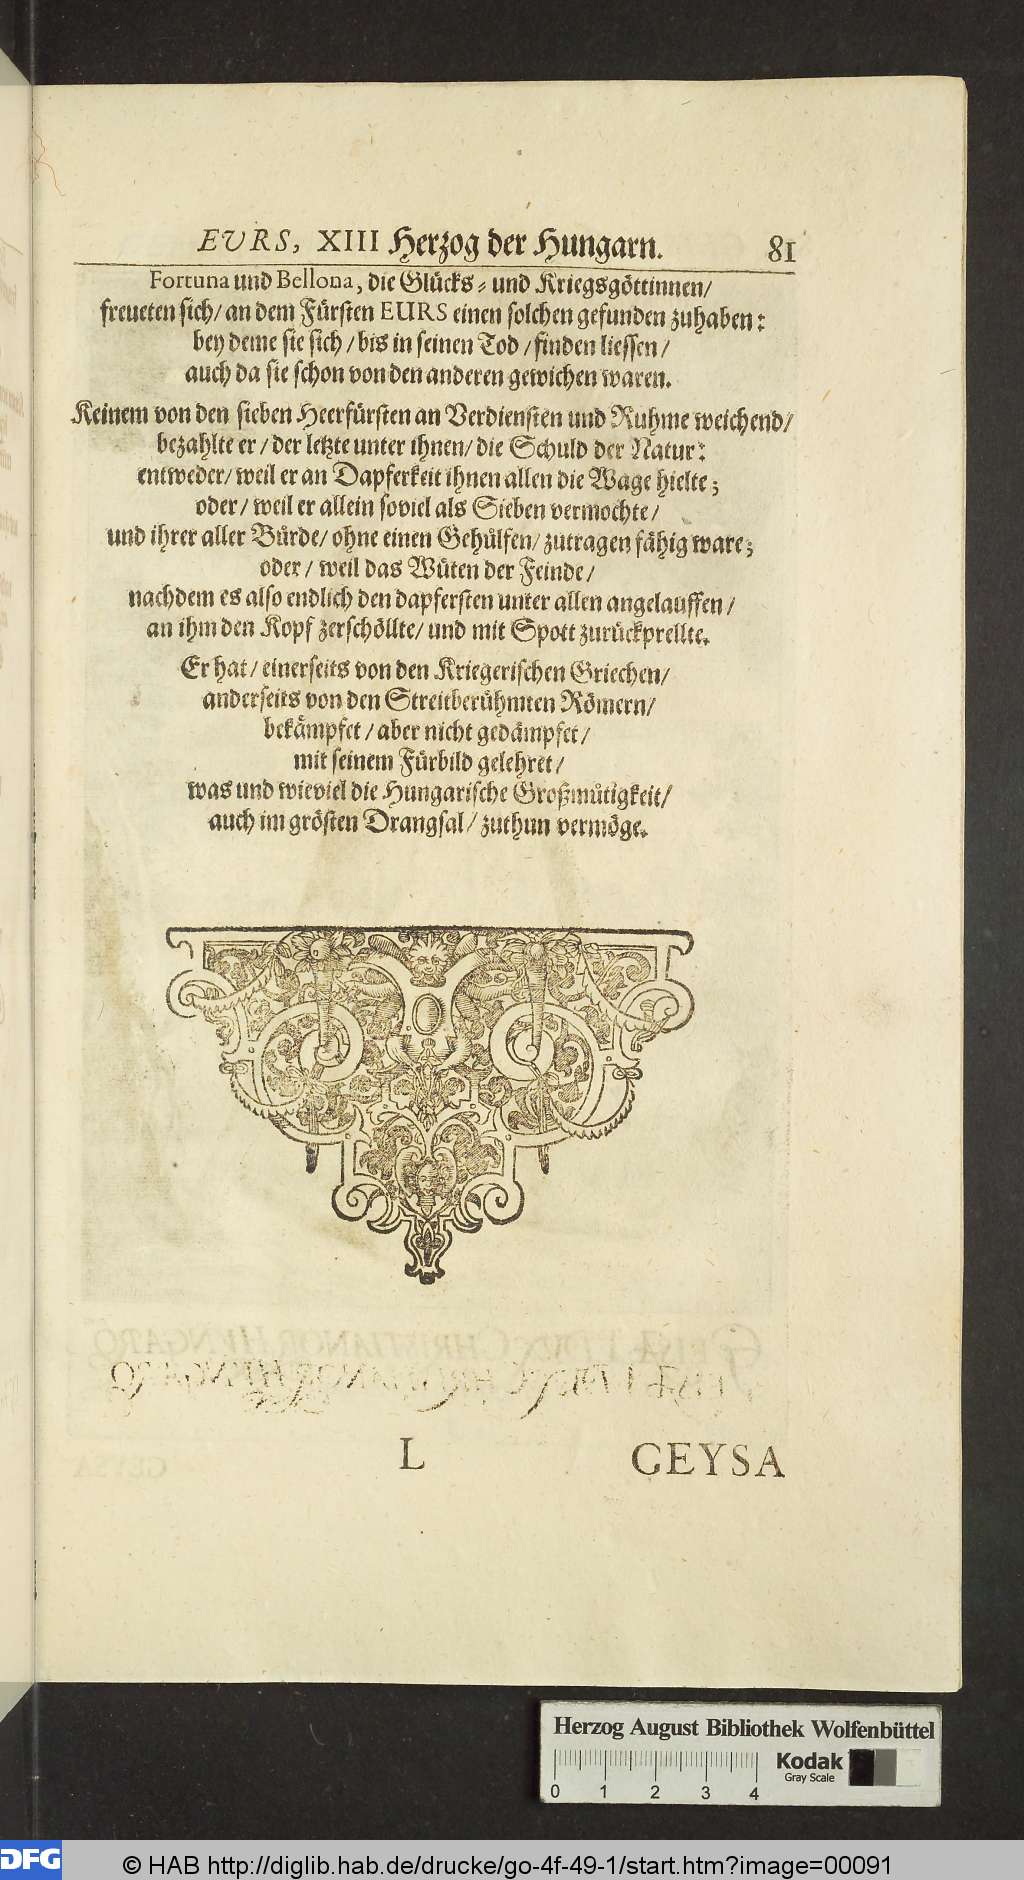 EVRS, XIII Herzog der Hungarn. 81
Fortuna und Bellona, die Glücks- und Kriegsgöttinnen/
freueten sich/ an dem Fürsten EURS einen solchen gefunden zuhaben:
bey deme sie sich/ bis in seinen Tod/ finden liessen/
auch da sie schon von den anderen gewichen waren.
Keinem von den sieben Heerfürsten an Verdiensten und Ruhme weichend/
bezahlte er/ der letzte unter ihnen/ die Schuld der Natur:
entweder/ weil er an Dapferkeit ihnen allen die Wage hielte;
oder/ weil er allein soviel als Sieben vermochte/
und ihrer aller Bürde/ ohne einen Gehülfen/ zutragen fähig ware;
oder/ weil das Wüten der Feinde/
nachdem es also endlich den dapfersten unter allen angelauffen/
an ihm den Kopf zerschöllte/ und mit Spott zurückprellte.
Er hat/ einerseits von den Kriegerischen Griechen/
anderseits von den Streitberühmten Römern/
bekämpfet/ aber nicht gedämpfet/
mit seinem Fürbild gelehret/
was und wieviel die Hungarische Großmütigkeit/
auch im grösten Drangsal/ zuthun vermöge.
L GEYSA
Herzog August Bibliothek Wolfenbüttel
Kodak
Gray Scale
0 1 2 3 4
DFG © HAB http://diglib.hab.de/drucke/go-4f-49-1/start.htm?image=00091